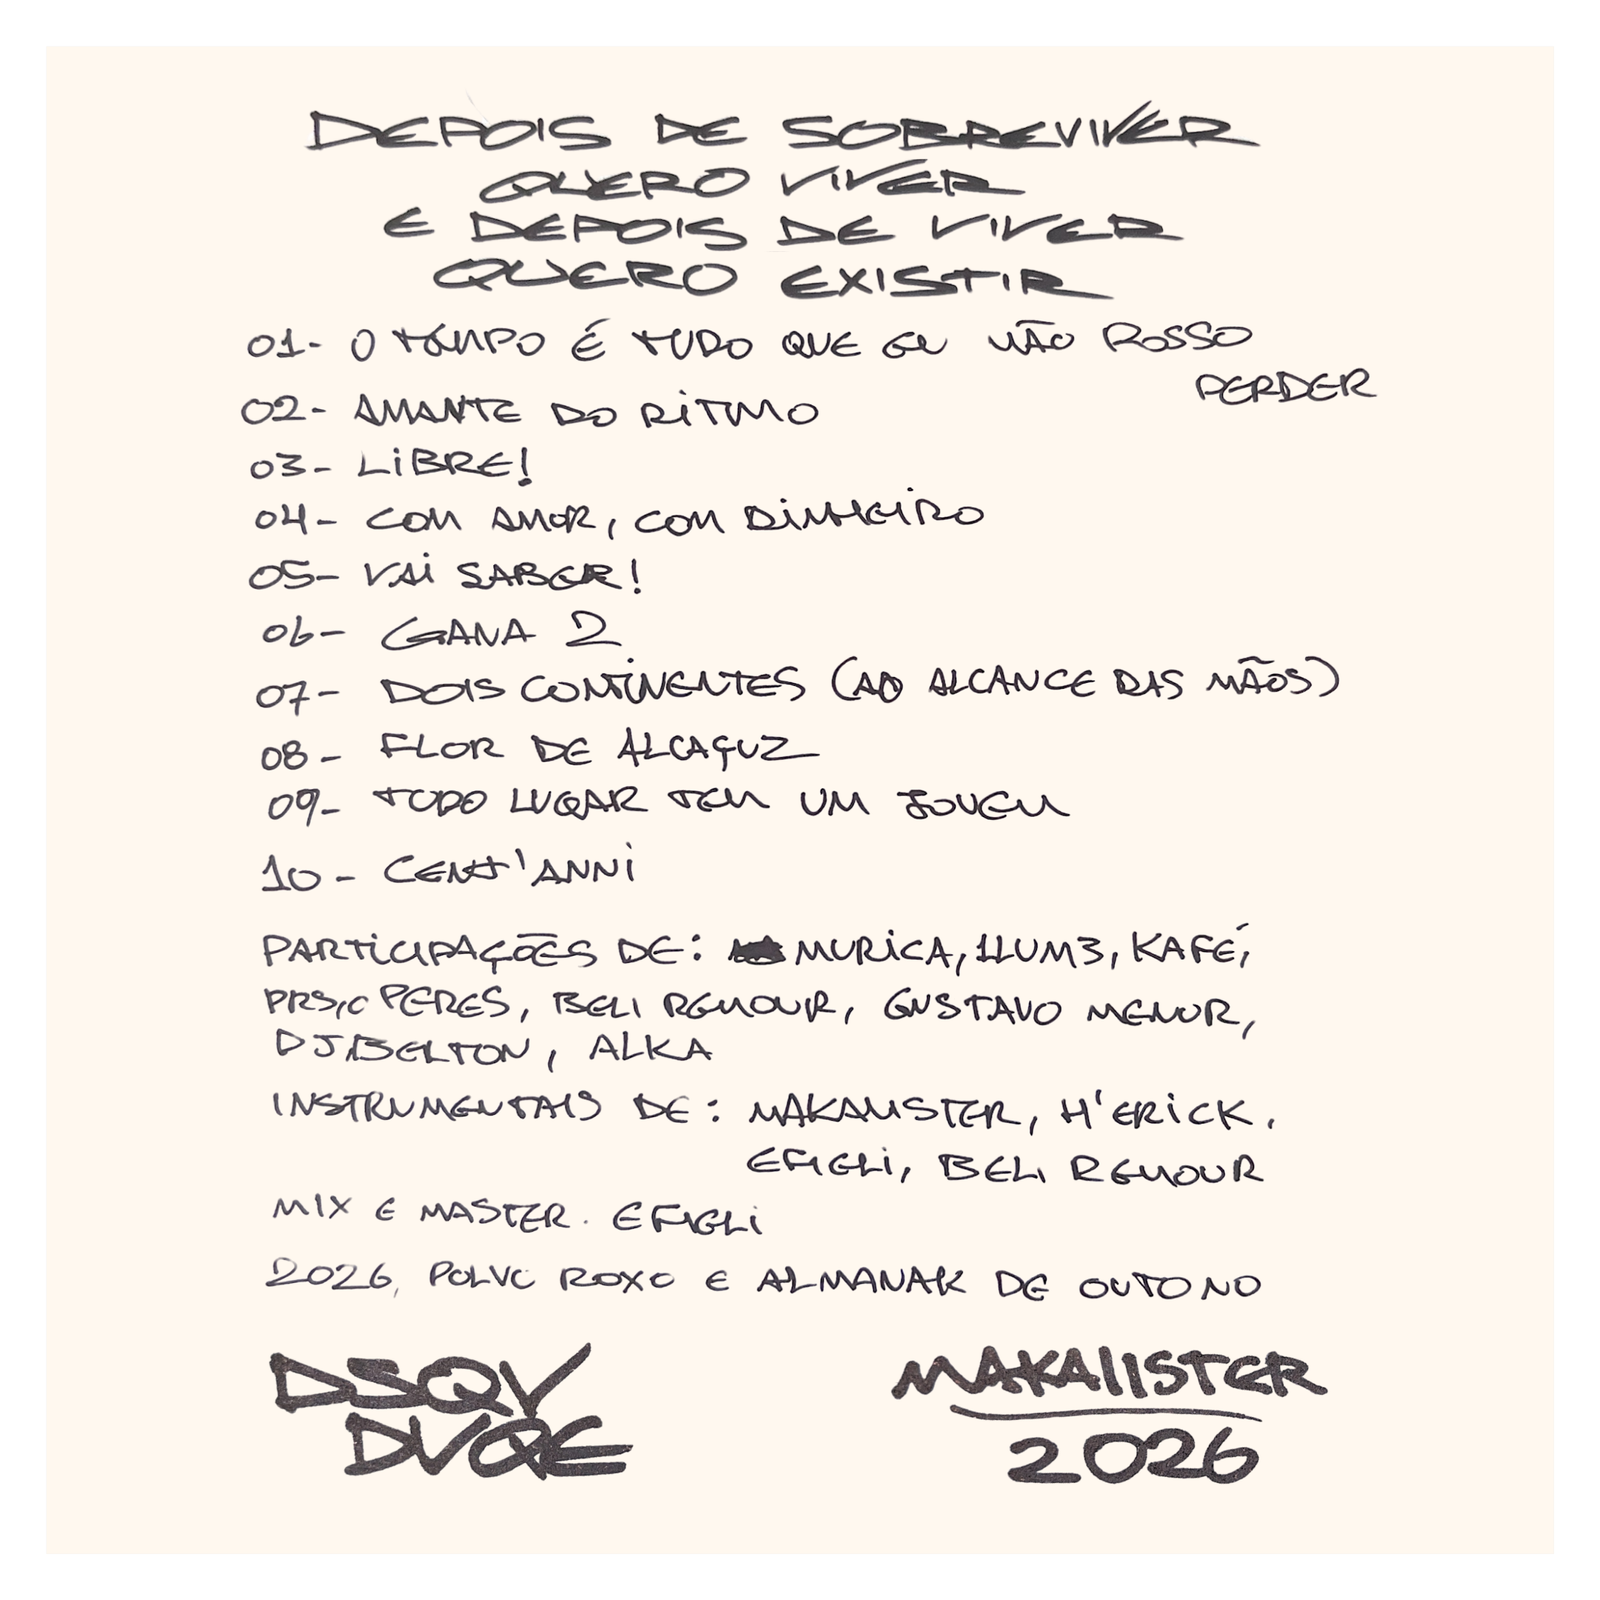 DEPOIS DE SOBREVIVER
QUERO VIVER
E DEPOIS DE VIVER
QUERO EXISTIR
01- O TEMPO É TUDO QUE EU NÃO POSSO
PERDER
02- AMANTE DO RITMO
03- LIBRE!
04- COM AMOR, COM DINHEIRO
05- VAI SABER!
06- GANA 2
07- DOIS CONTINENTES (AO ALCANCE DAS MÃOS)
08- FLOR DE ALCAÇUZ
09- TODO LUGAR TEM UM JOVEM
10- CENT'ANNI
PARTICIPAÇÕES DE: MURICA, 1LUM3, KAFÉ,
PERES, BELI REMOUR, GUSTAVO MENOR,
DJ BELTON, ALKA
INSTRUMENTAIS DE: MAKALISTER, H'ERICK.
EFIGLI, BELI REMOUR
MIX E MASTER. EFIGLI
2026, POLVO ROXO E ALMANAK DE OUTONO
DSQV
DVQE
MAKALISTER
2026